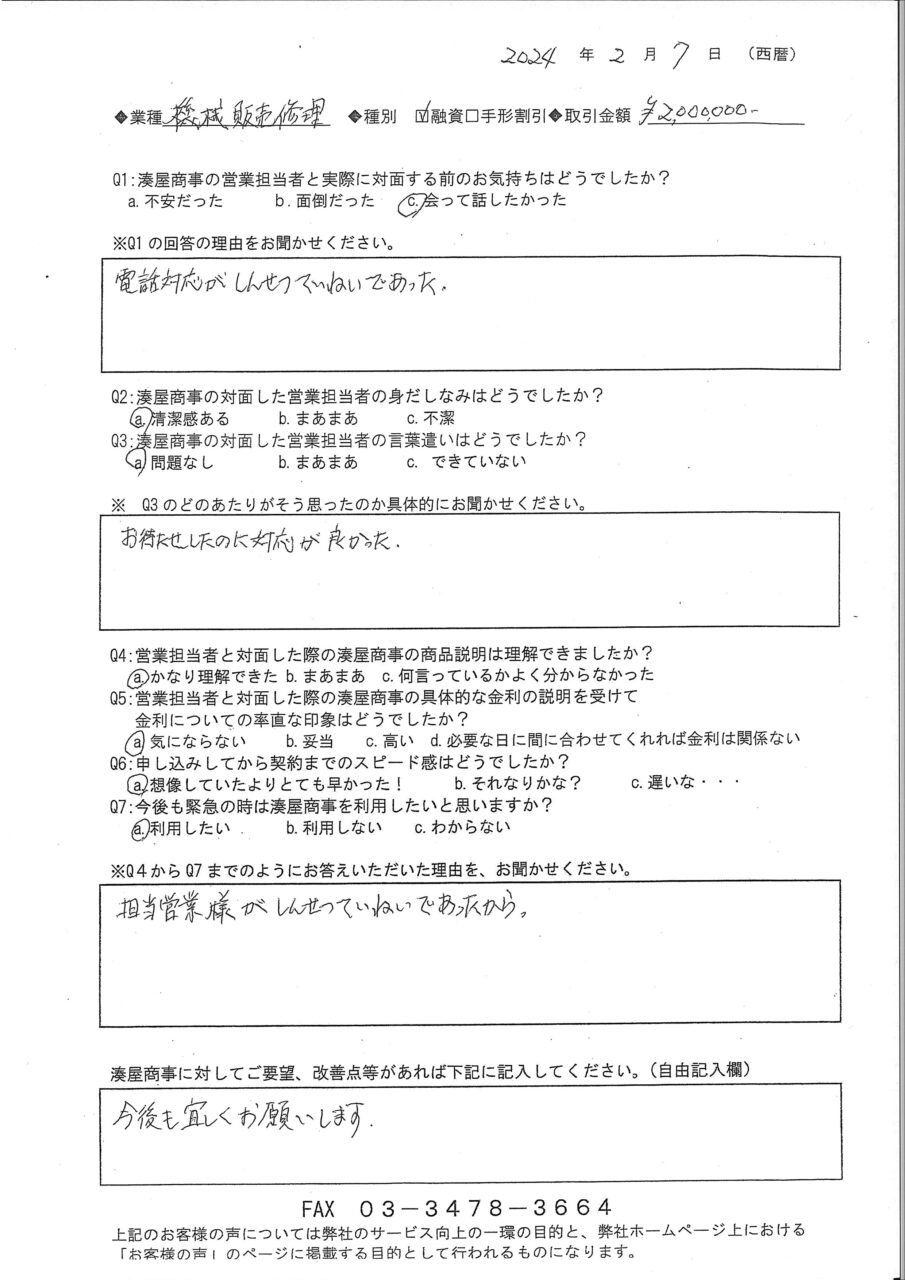 2024 年 2 月 7 日 (西暦)
◆業種 機械販売修理 ◆種別 ☑融資□手形割引◆取引金額 ¥2,000,000-
Q1:湊屋商事の営業担当者と実際に対面する前のお気持ちはどうでしたか？
a.不安だった b.面倒だった c.会って話したかった
※Q1の回答の理由をお聞かせください。
電話対応がしんせつていねいであった.
Q2:湊屋商事の対面した営業担当者の身だしなみはどうでしたか？
a.清潔感ある b.まあまあ c.不潔
Q3:湊屋商事の対面した営業担当者の言葉遣いはどうでしたか？
a 問題なし b.まあまあ c. できていない
※ Q3のどのあたりがそう思ったのか具体的にお聞かせください。
お待たせしたのに対応が良かった.
Q4:営業担当者と対面した際の湊屋商事の商品説明は理解できましたか？
a.かなり理解できた b.まあまあ c.何言っているかよく分からなかった
Q5:営業担当者と対面した際の湊屋商事の具体的な金利の説明を受けて
金利についての率直な印象はどうでしたか？
a 気にならない b.妥当 c.高い d.必要な日に間に合わせてくれれば金利は関係ない
Q6:申し込みしてから契約までのスピード感はどうでしたか？
a.想像していたよりとても早かった！ b.それなりかな？ c.遅いな・・・
Q7:今後も緊急の時は湊屋商事を利用したいと思いますか？
a.利用したい b.利用しない c.わからない
※Q4からQ7までのようにお答えいただいた理由を、お聞かせください。
担当営業様がしんせつていねいであったから。
湊屋商事に対してご要望、改善点等があれば下記に記入してください。(自由記入欄)
今後も宜しくお願いします.
FAX 03－3478－3664
上記のお客様の声については弊社のサービス向上の一環の目的と、弊社ホームページ上における
「お客様の声」のページに掲載する目的として行われるものになります。